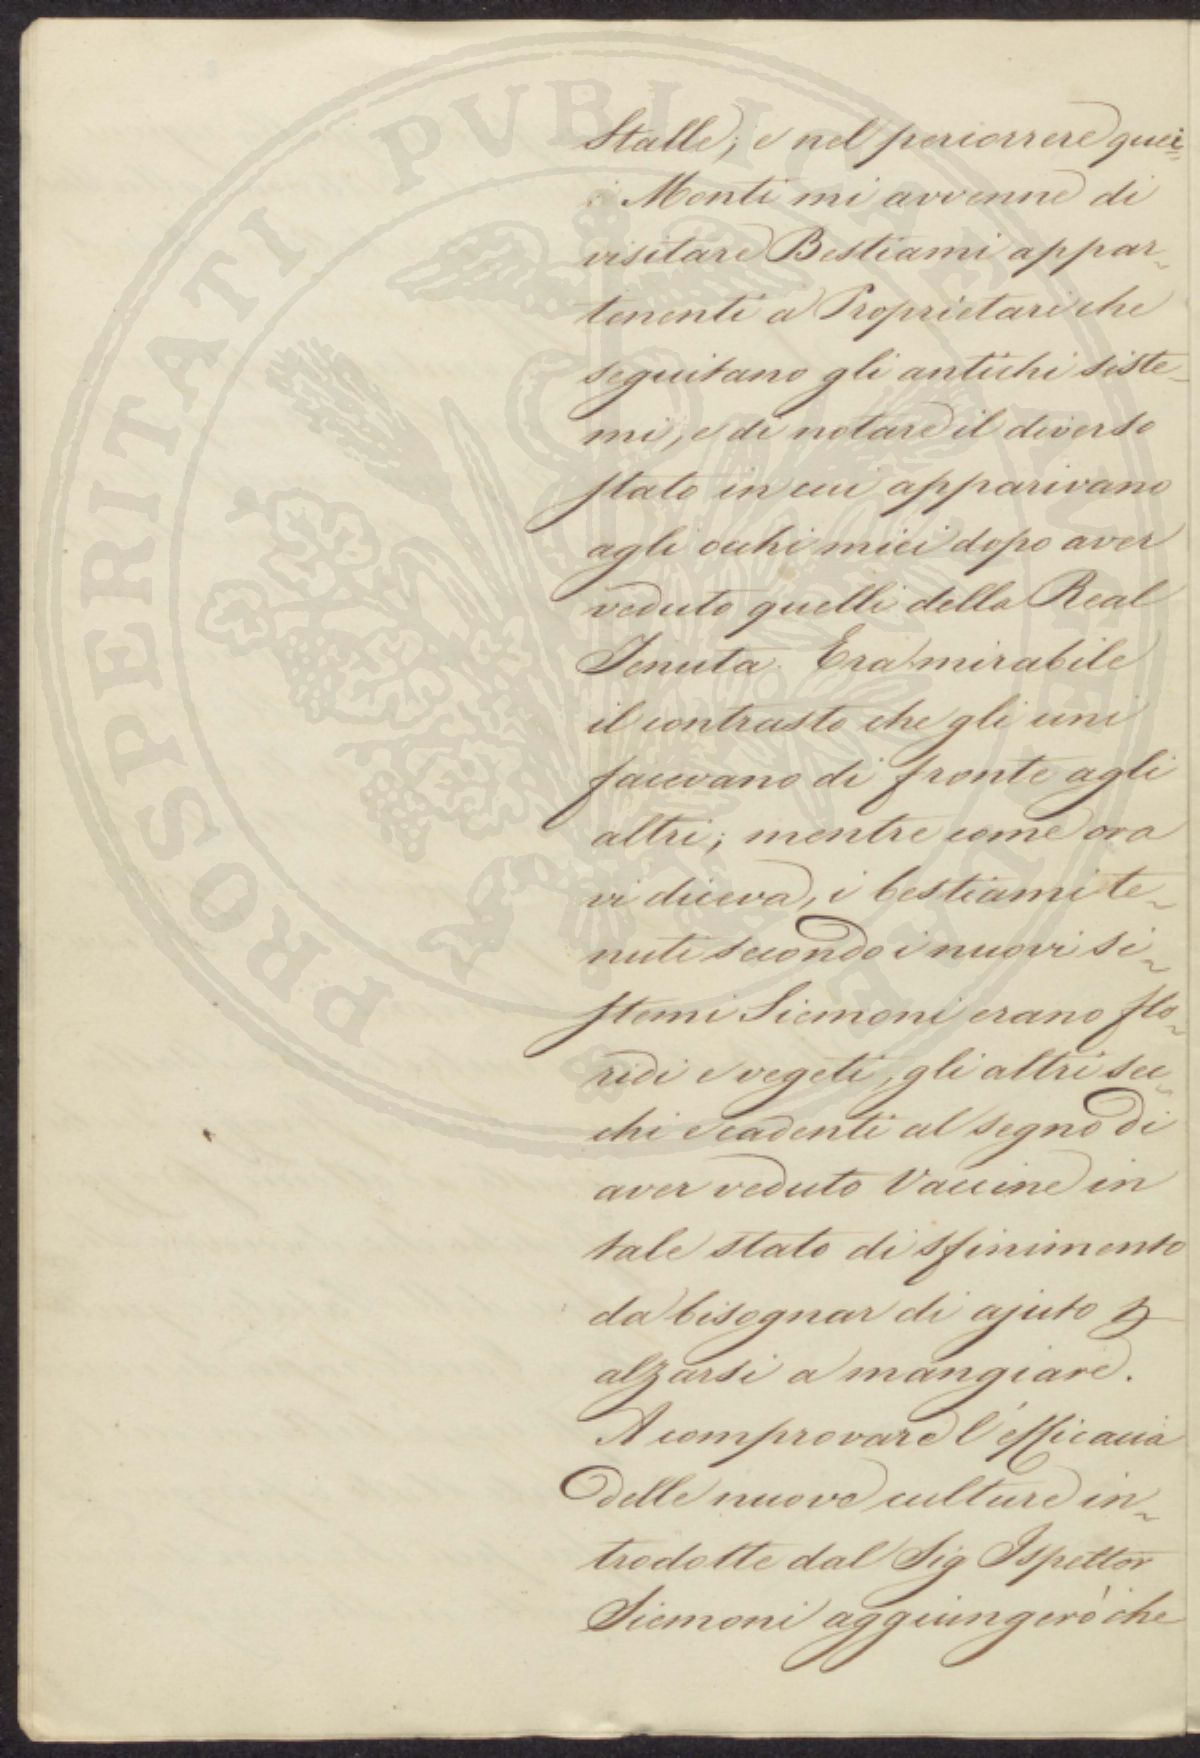 Stalle; e nel percorrere quei
Monti mi avvenne di
visitare Bestiami appar~
tenenti a Proprietari che
seguitano gli antichi siste~
mi, e di notare il diverso
stato in cui apparivano
agli occhi miei dopo aver
veduto quelli della Real
Tenuta. Era mirabile
il contrasto che gli uni
facevano di fronte agli
altri; mentre come ora
vi diceva, i bestiami te~
nuti secondo i nuovi si~
stemi Siemoni erano flo~
ridi e vegeti, gli altri sec~
chi e cadenti al segno di
aver veduto Vaccine in
tale stato di sfinimento
da bisognar di ajuto p
alzarsi a mangiare.
A comprovare l'efficacia
delle nuove culture in~
trodotte dal Sig Ispettor
Siemoni aggiungerò che
PROSPERITATI PVBLICAE AVGENDAE